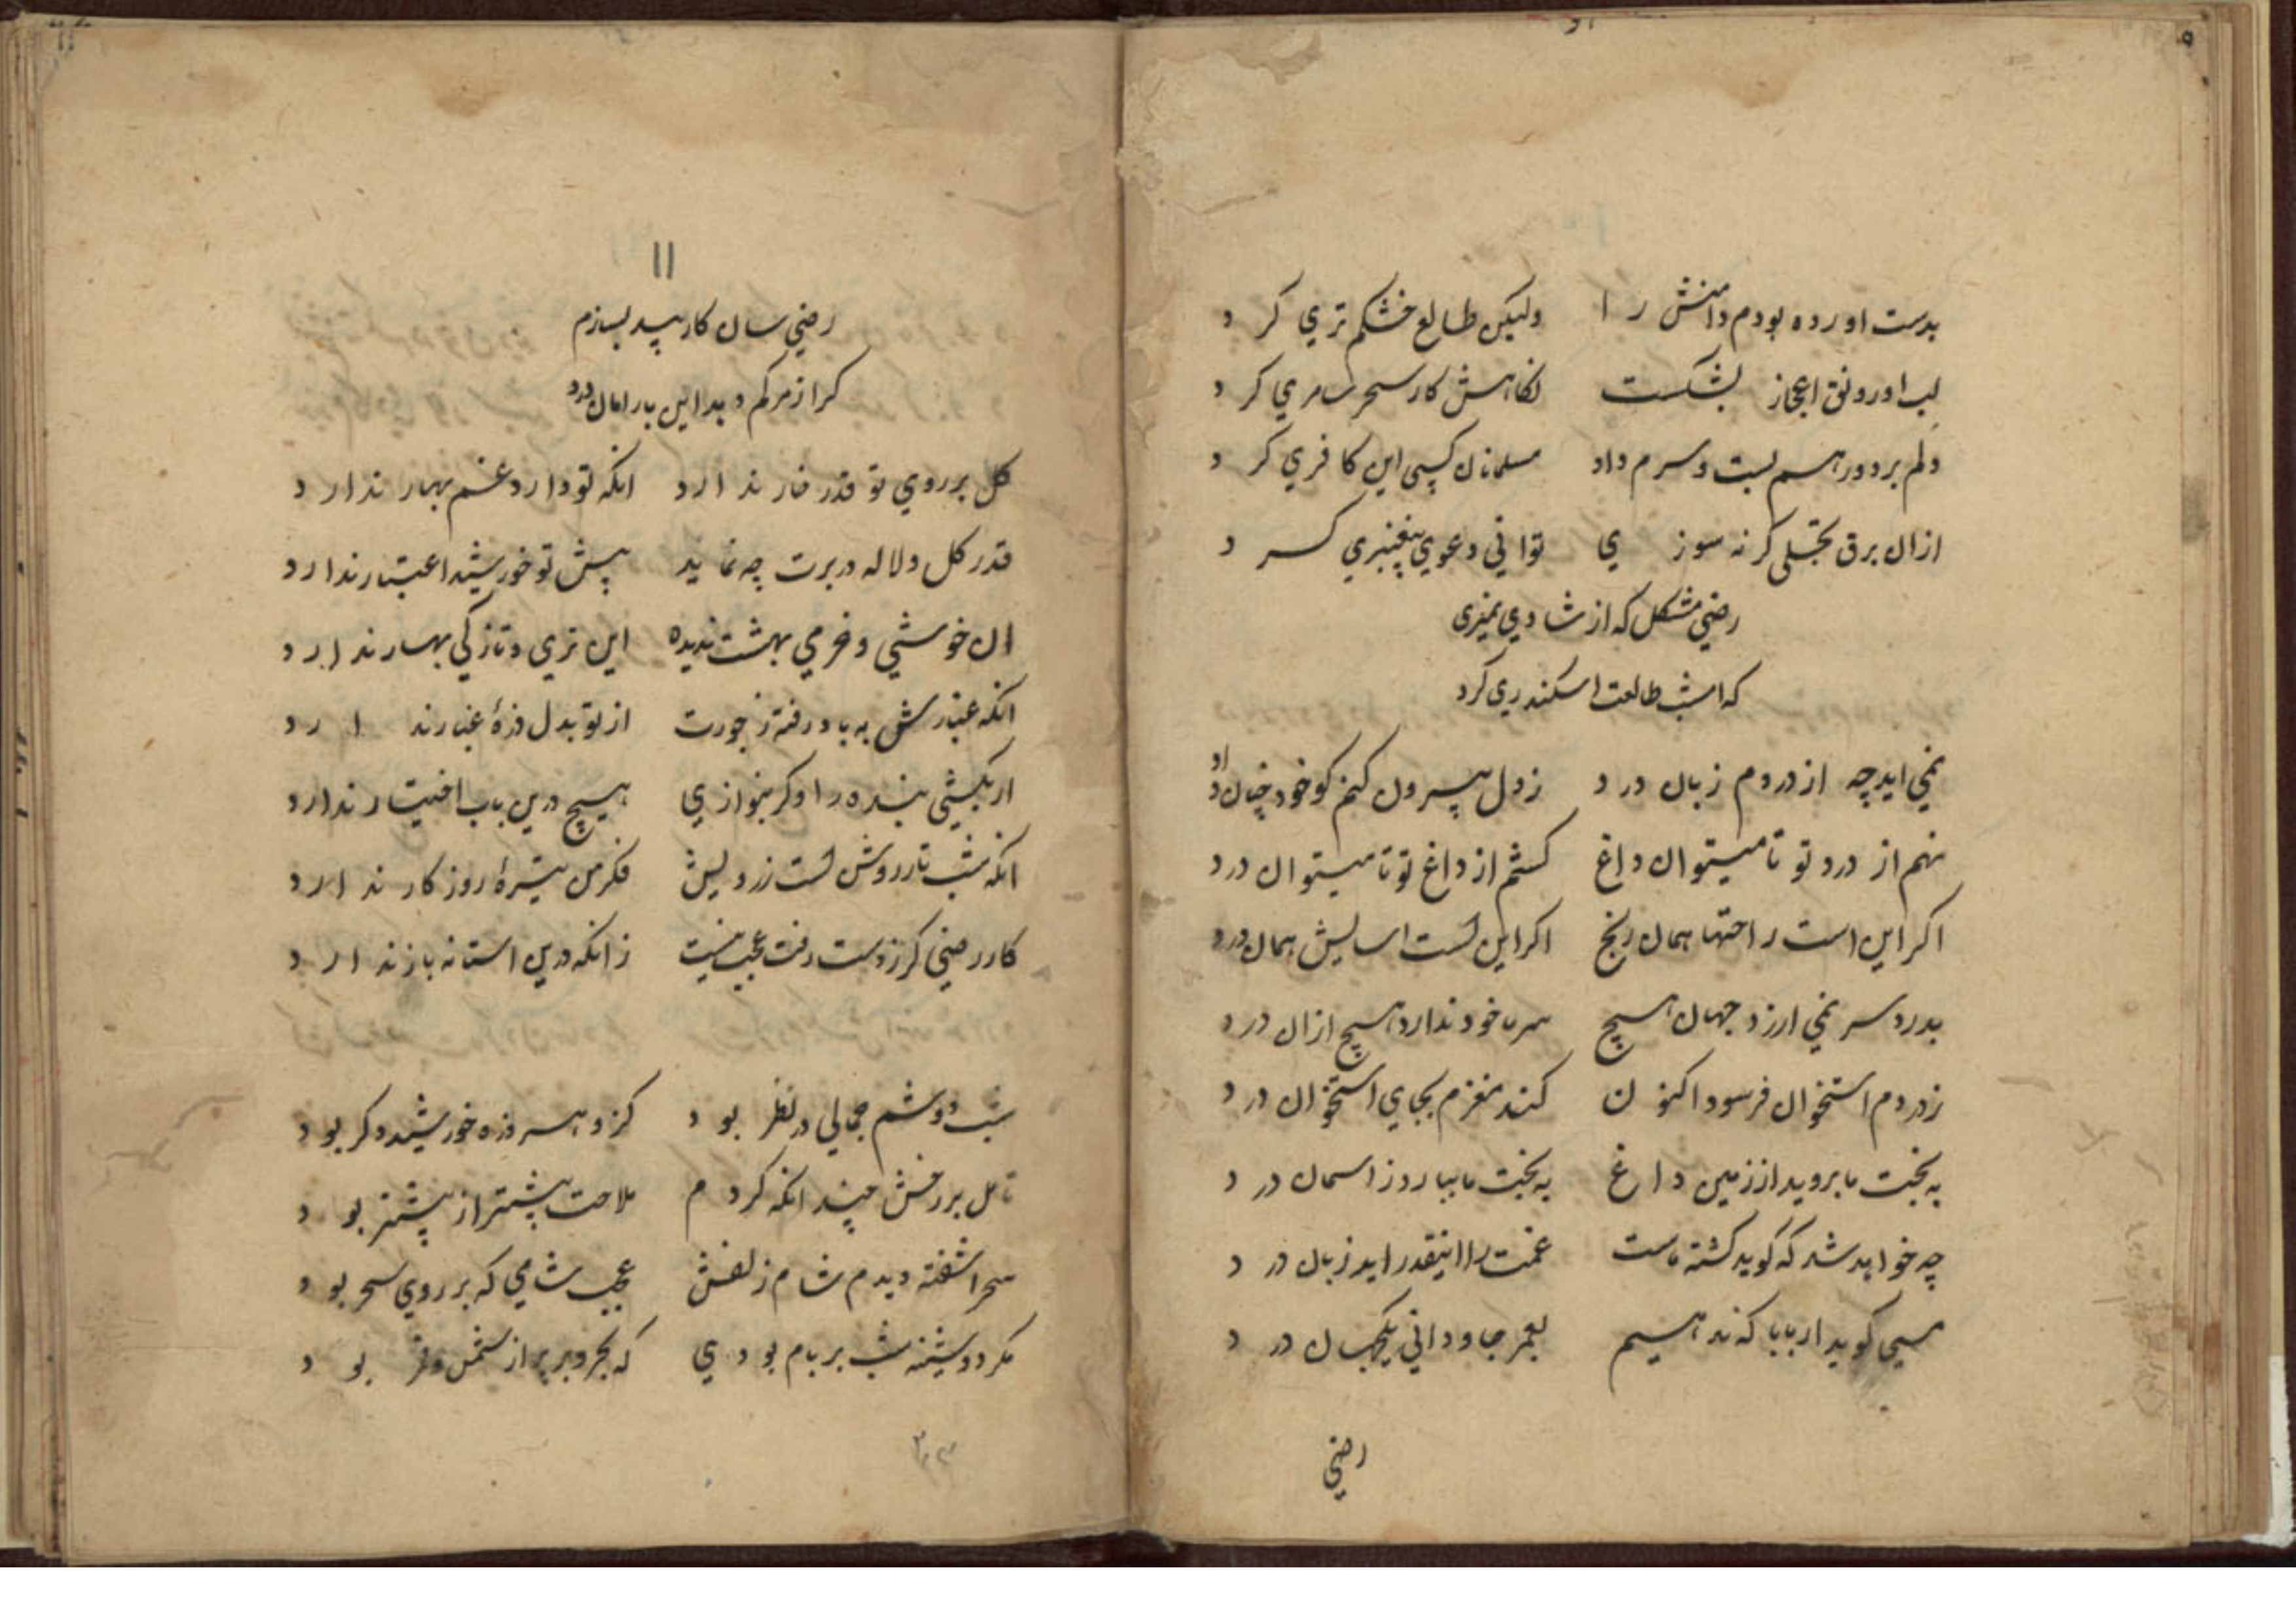 بدست اورده بودم دامنش را ولیکن طالع خشکم تري کرد
لب او رونق اعجاز بشکست نکاهش کار سحر سامري کرد
دلم برد و رهم بست و سرم داد مسلمانان کسی این کافري کرد
ازان برق تجلی کر نه سوزي تواني دعوي پیغنبري کرد
رضي مشکل که از شادي نمیری
که امشب طالعت اسکندري کرد
نمي اید چه از دردم زبان درد ز دل بیرون کنم کو خود چنان
نهم از درد تو تا میتوان داغ کشم از داغ تو تا میتوان درد
اکر این است راحتها همان رنج اکر این است اسایش همان درد
بدرد سر نمي ارزد جهان هیچ سر ما خود ندارد هیچ ازان درد
ز دردم استخوان فرسود اکنون کند مغزم بجاي استخوان درد
به بخت ما بروید از زمین داغ به بخت ما ببارد ز اسمان درد
چه خواهد شد که کوید کشته ماست غمت را اینقدر اید زبان درد
مسیحی کوید ار بابا که ندهیم بعمر جاوداني یکجهان درد
رضي
١١
رضي سان کار بیدل بسازم
کر از مرکم دهد این بار امان درد
کل بر روي تو قدر خار ندارد انکه تو دارد غم بهار ندارد
قدر کل و لاله در برت چه نماید پیش تو خورشید اعتبار ندارد
ان خوشي و خرمي بهشت ندیده این تري و تازکي بهار ندارد
انکه غبارش به باد رفته ز جورت از تو بدل ذرۀ غبار ندارد
ار بکشي بنده را و کر بنوازي هیچ درین باب اختیار ندارد
انکه شب تار روشن است ز رویش فکر من تیرۀ روزکار ندارد
کار رضي کر ز دست رفت عجب نیست زانکه درین استانه بار ندارد
شب دوشم جمالي در نظر بود کزو هر ذره خورشید دکر بود
تامل بر رخش چندانکه کردم ملاحت بیشتر از پیشتر بود
سحر اشفته دیدم شام زلفش عجب شامي که بر روي سحر بود
مکر دوشینه شب بر بام بودي که بحر و بر پر از شمس و قمر بود